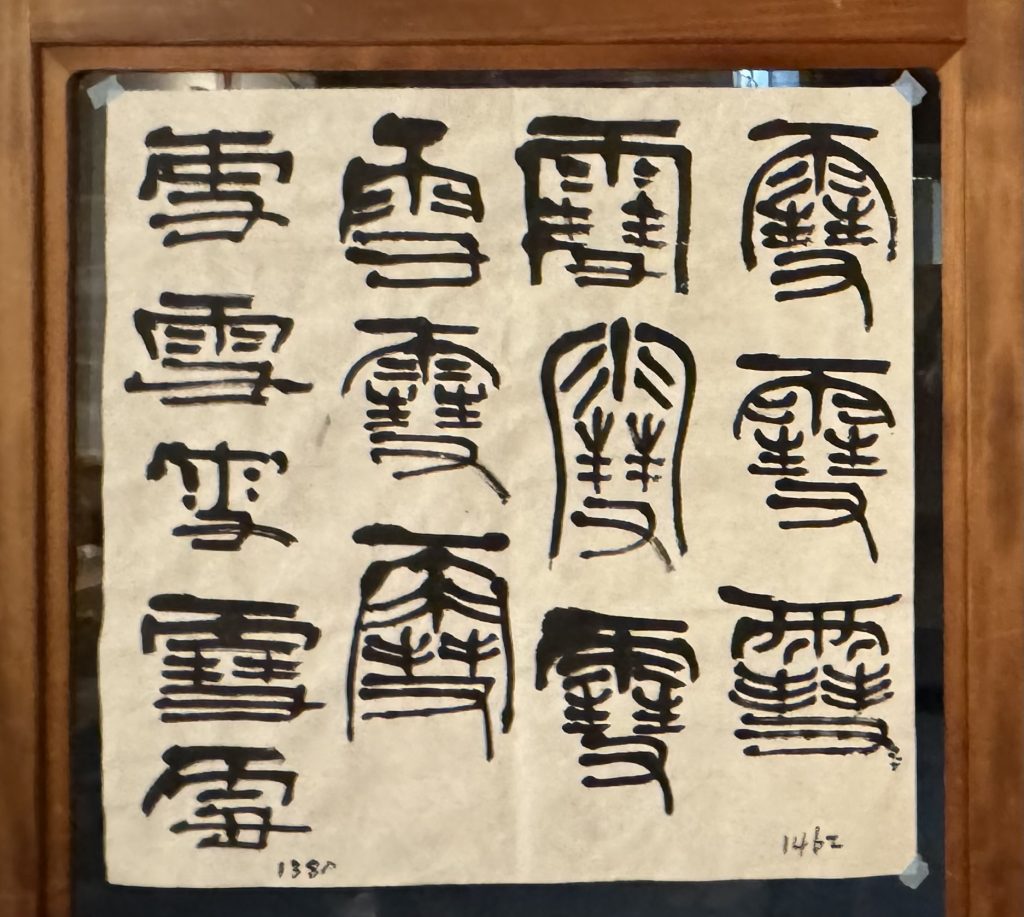 雪雪雪
雪雪雪
雪雪雪
雪雪雪雪雪
1462